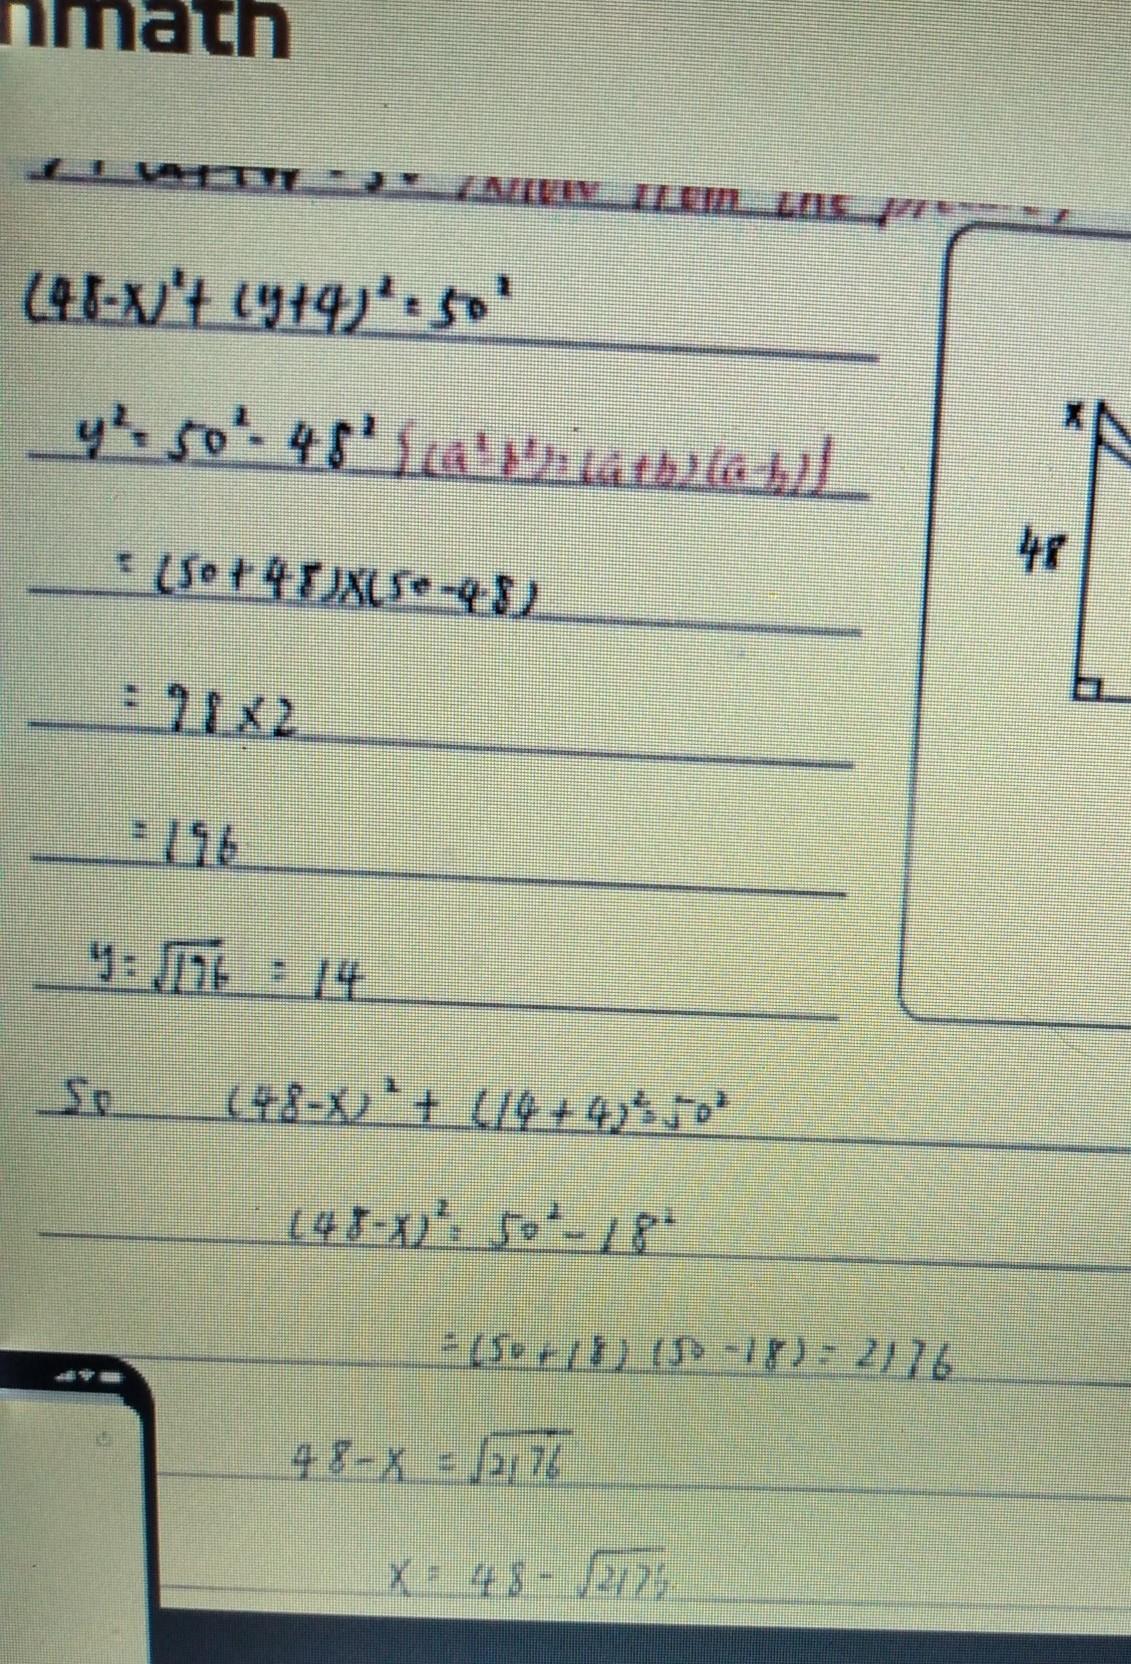 nmath
(48-x)²+(y+4)²=50²
y²=50²-48² {(a²-b²)=(a+b)(a-b)}
x
=(50+48)x(50-48)
48
=98x2
=196
y=√196 = 14
So (48-x)²+(14+4)²=50²
(48-x)²=50²-18²
=(50+18)(50-18)=2176
48-x=√2176
x=48-√2176